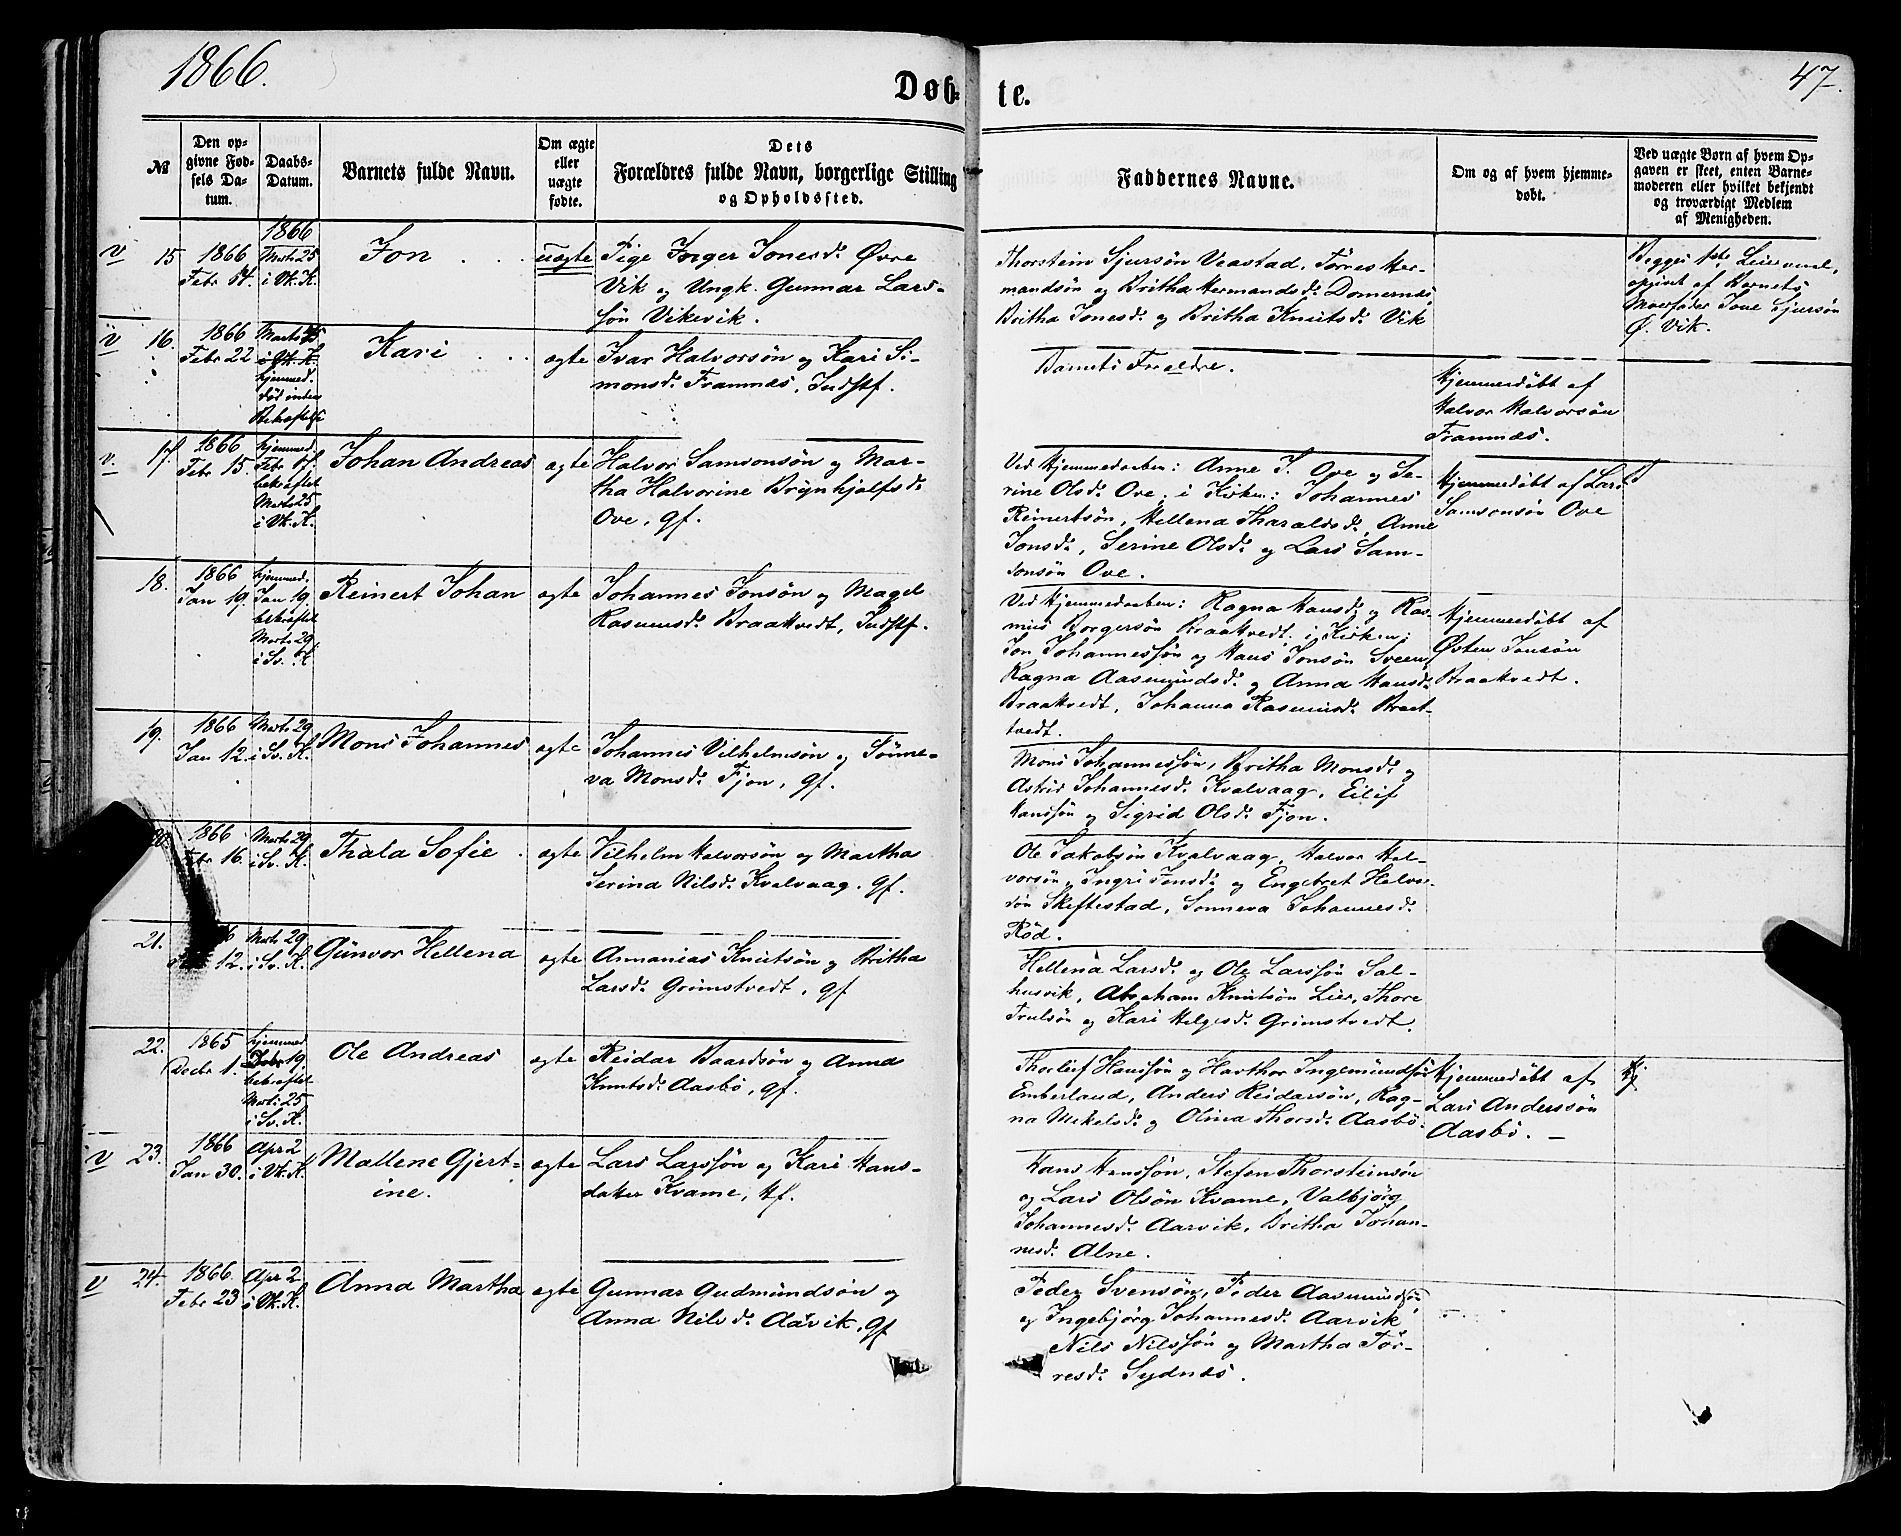 1866.
Døb-
te.
47.
№
Den op-
givne Fød-
sels Da-
tum.
Daabs-
Datum.
Barnets fulde Navn.
Om ægte
eller
uægte
fødte.
Dets
Forældres fulde Navn, borgerlige Stilling
og Opholdssted.
Faddernes Navne.
Om og af hvem hjemme-
døbt.
Ved uægte Børn af hvem Op-
gaven er skeet, enten Barne-
moderen eller hvilket bekjendt
og troværdigt Medlem
af Menigheden.
v 15
1866
Febr 14.
1866
Marts 25
i Vk. K.
Jon
uægte
Pige Inger Jonesd. Øvre
Vik og Ungk. Gunnar Lars-
søn Vikevik.
Thorstein Sjursøn Veastad, Tørres Her-
mandsøn og Britha Hermandsd. Domernes,
Britha Jonesd. og Britha Knutsd. Vik
Begges 1ste Leiermaal,
opgivet af Barnets
Moerfader Jone Sjursøn
Ø. Vik.
v 16.
1866
Febr 22
Marts 25
i Vk. K.
hjemmed.
død inden
Bekræftelse
Kari
ægte
Ivar Halvorsøn og Kari Si-
monsd. Framnæs, Indst.
Barnets Forældre.
Hjemmedøbt af
Halvor Halvorsøn
Framnæs.
v. 17.
1866
Febr 15.
hjemmed.
Febr 17.
bekræftet
Marts 25
i Vk. K.
Johan Andreas
ægte
Halvor Samsonsøn og Mar-
tha Halvorine Brynhjolfsd.
Ove, gf.
Ved Hjemmedaaben: Anne J. Ove og Se-
rine Olsd. Ove; i Kirken: Johannes
Reinertsøn, Hellena Tharaldsd., Anne
Jonsd., Serine Olsd. og Lars Sam-
sonsøn Ove.
Hjemmedøbt af Lars
Samsonsøn Ove
18.
1866
Jan 19.
hjemmed.
Jan 19.
bekræftet
Marts 29
i Sv. K.
Reinert Johan
ægte
Johannes Jonsøn og Magel
Rasmusd. Braatvedt, Indst.
Ved Hjemmedaaben: Ragna Hansd. og Ras-
mus Borgersøn Braatvedt; i Kirken:
Jon Johannessøn og Hans Jonsøn Sveen,
Ragna Aasmundsd. og Anna Hansd.
Braatvedt, Johanna Rasmusd. Braat-
vedt.
Hjemmedøbt af
Østen Jonsøn
Braatvedt.
19.
1866
Jan 12.
Marts 29
i Sv. K.
Mons Johannes
ægte
Johannes Vilhelmsøn og Sønne-
va Monsd. Fjon, gf.
Mons Johannessøn, Britha Monsd. og
Astrid Johannesd. Kvalvaag, Eilif
Hanssøn og Sigrid Olsd. Fjon.
20.
1866
Febr 16.
Marts 29
i Sv. K.
Thala Sofie
ægte
Vilhelm Halvorsøn og Martha
Serina Nilsd. Kvalvaag, gf.
Ole Jakobsøn Kvalvaag, Halvor Hal-
vorsøn, Ingri Jonsd. og Engebret Halvor-
søn Skeftestad, Sonneva Johannesd.
Rød.
21.
12.
Marts 29
i Sv. K.
Gunvor Hellena
ægte
Annanias Knutsøn og Britha
Larsd. Grimstvedt, gf
Hellena Larsd. og Ole Larssøn Sal-
husvik, Abraham Knutsøn Lier, Thore
Trulsøn og Kari Helgesd. Grimstvedt.
22.
1865
Decbr 1.
hjemmed
19.
bekræftet
Marts 25
i Sv. K.
Ole Andreas
ægte
Reidar Baardsøn og Anna
Knutsd. Aasbø, gf.
Thorleif Hanssøn og Havthor Ingemundsøn
Emberland, Anders Reidarsøn, Rag-
na Mikelsd. og Olina Thorsd. Aasbø.
Hjemmedøbt af
Lars Anderssøn
Aasbø. —
v 23.
1866
Jan 30.
Apr 2
i Vk. K.
Mallene Gjert-
ine.
ægte
Lars Larssøn og Kari Hans-
datter Kvame, Hf.
Hans Hanssøn, Stefen Thorsteinsøn
og Lars Olsøn Kvame, Valbjørg
Johannesd. Aarvik, Britha Johan-
nesd. Alne.
v 24.
1866.
Febr 23
Apr 2
i Vk. K.
Anna Martha
ægte
Gunnar Gudmundsøn og
Anna Nilsd. Aarvik, gf
Peder Svensøn, Peder Aasmundsøn
og Ingebjørg Johannesd. Aarvik,
Nils Nilssøn og Martha Tør-
resd. Sydnæs.